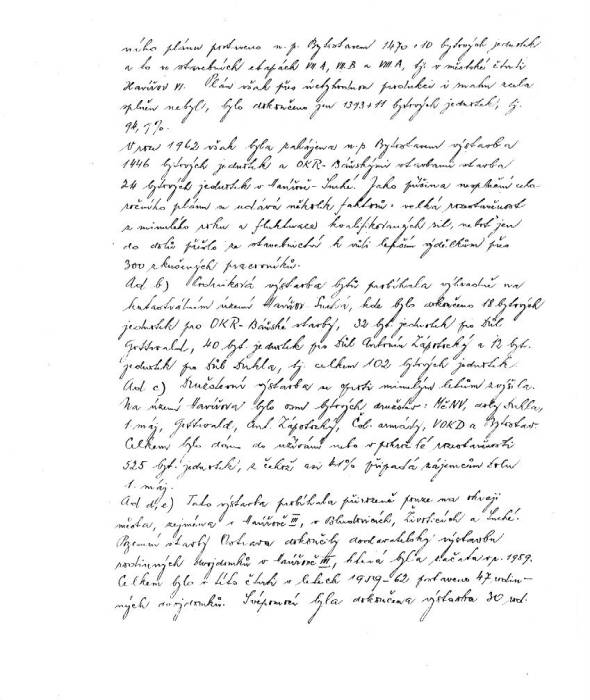 ního plánu postaveno n.p. Bytostavem 1470 + 10 bytových jednotek
a to v stavebních etapách VII A, VII B a VIII A, tj. v městské části
Havířov VI. Plán však přes úctyhodnou produkci i mahu zcela
splněn nebyl, bylo dokončeno jen 1393 + 11 bytových jednotek, tj.
94,9%.
V roce 1962 však byla zahájena n.p. Bytostavem výstavba
1446 bytových jednotek a OKR-Báňskými stavbami stavba
24 bytových jednotek v Havířově-Suché. Jako příčina nesplnění celo-
ročního plánu se udává několik faktorů: velká rozestavěnost
z minulého roku a fluktuace kvalifikovaných sil, neboť jen
do dolů přešlo ze stavebnictví k vůli lepším výdělkům přes
300 zkušených pracovníků.
Ad b) Podniková výstavba bytů probíhala výhradně na
katastrálním území Havířov Suchá, kde bylo dokončeno 18 bytových
jednotek pro OKR-Báňské stavby, 32 byt. jednotek pro Důl
Gottwald, 40 byt. jednotek pro Důl Antonín Zápotocký a 12 byt.
jednotek pro Důl Dukla, tj. celkem 102 bytových jednotek.
Ad c) Družstevní výstavba se oproti minulým letům zvýšila.
Na území Havířova bylo osm bytových družstev: MěNV, doly Dukla,
1. máj, Gottwald, Ant. Zápotocký, Čsl. armády, VOKD a Bytostav.
Celkem bylo dáno do užívání nebo v pokročilé rozestavěnosti
525 byt. jednotek, z čehož asi 41% připadá zájemcům Dolu
1. máj.
Ad d, e) Tato výstavba probíhala přirozeně pouze na okraji
města, zejména v Havířově III, v Bludovicích, Životicích a Suché.
Pozemní stavby Ostrava dokončily dodavatelsky výstavbu
rodinných dvojdomků v Havířově III, která byla začata v r. 1959.
Celkem bylo v této části v letech 1959-62 postaveno 47 rodin-
ných dvojdomků. Svépomocí byla dokončena výstavba 30 rod.